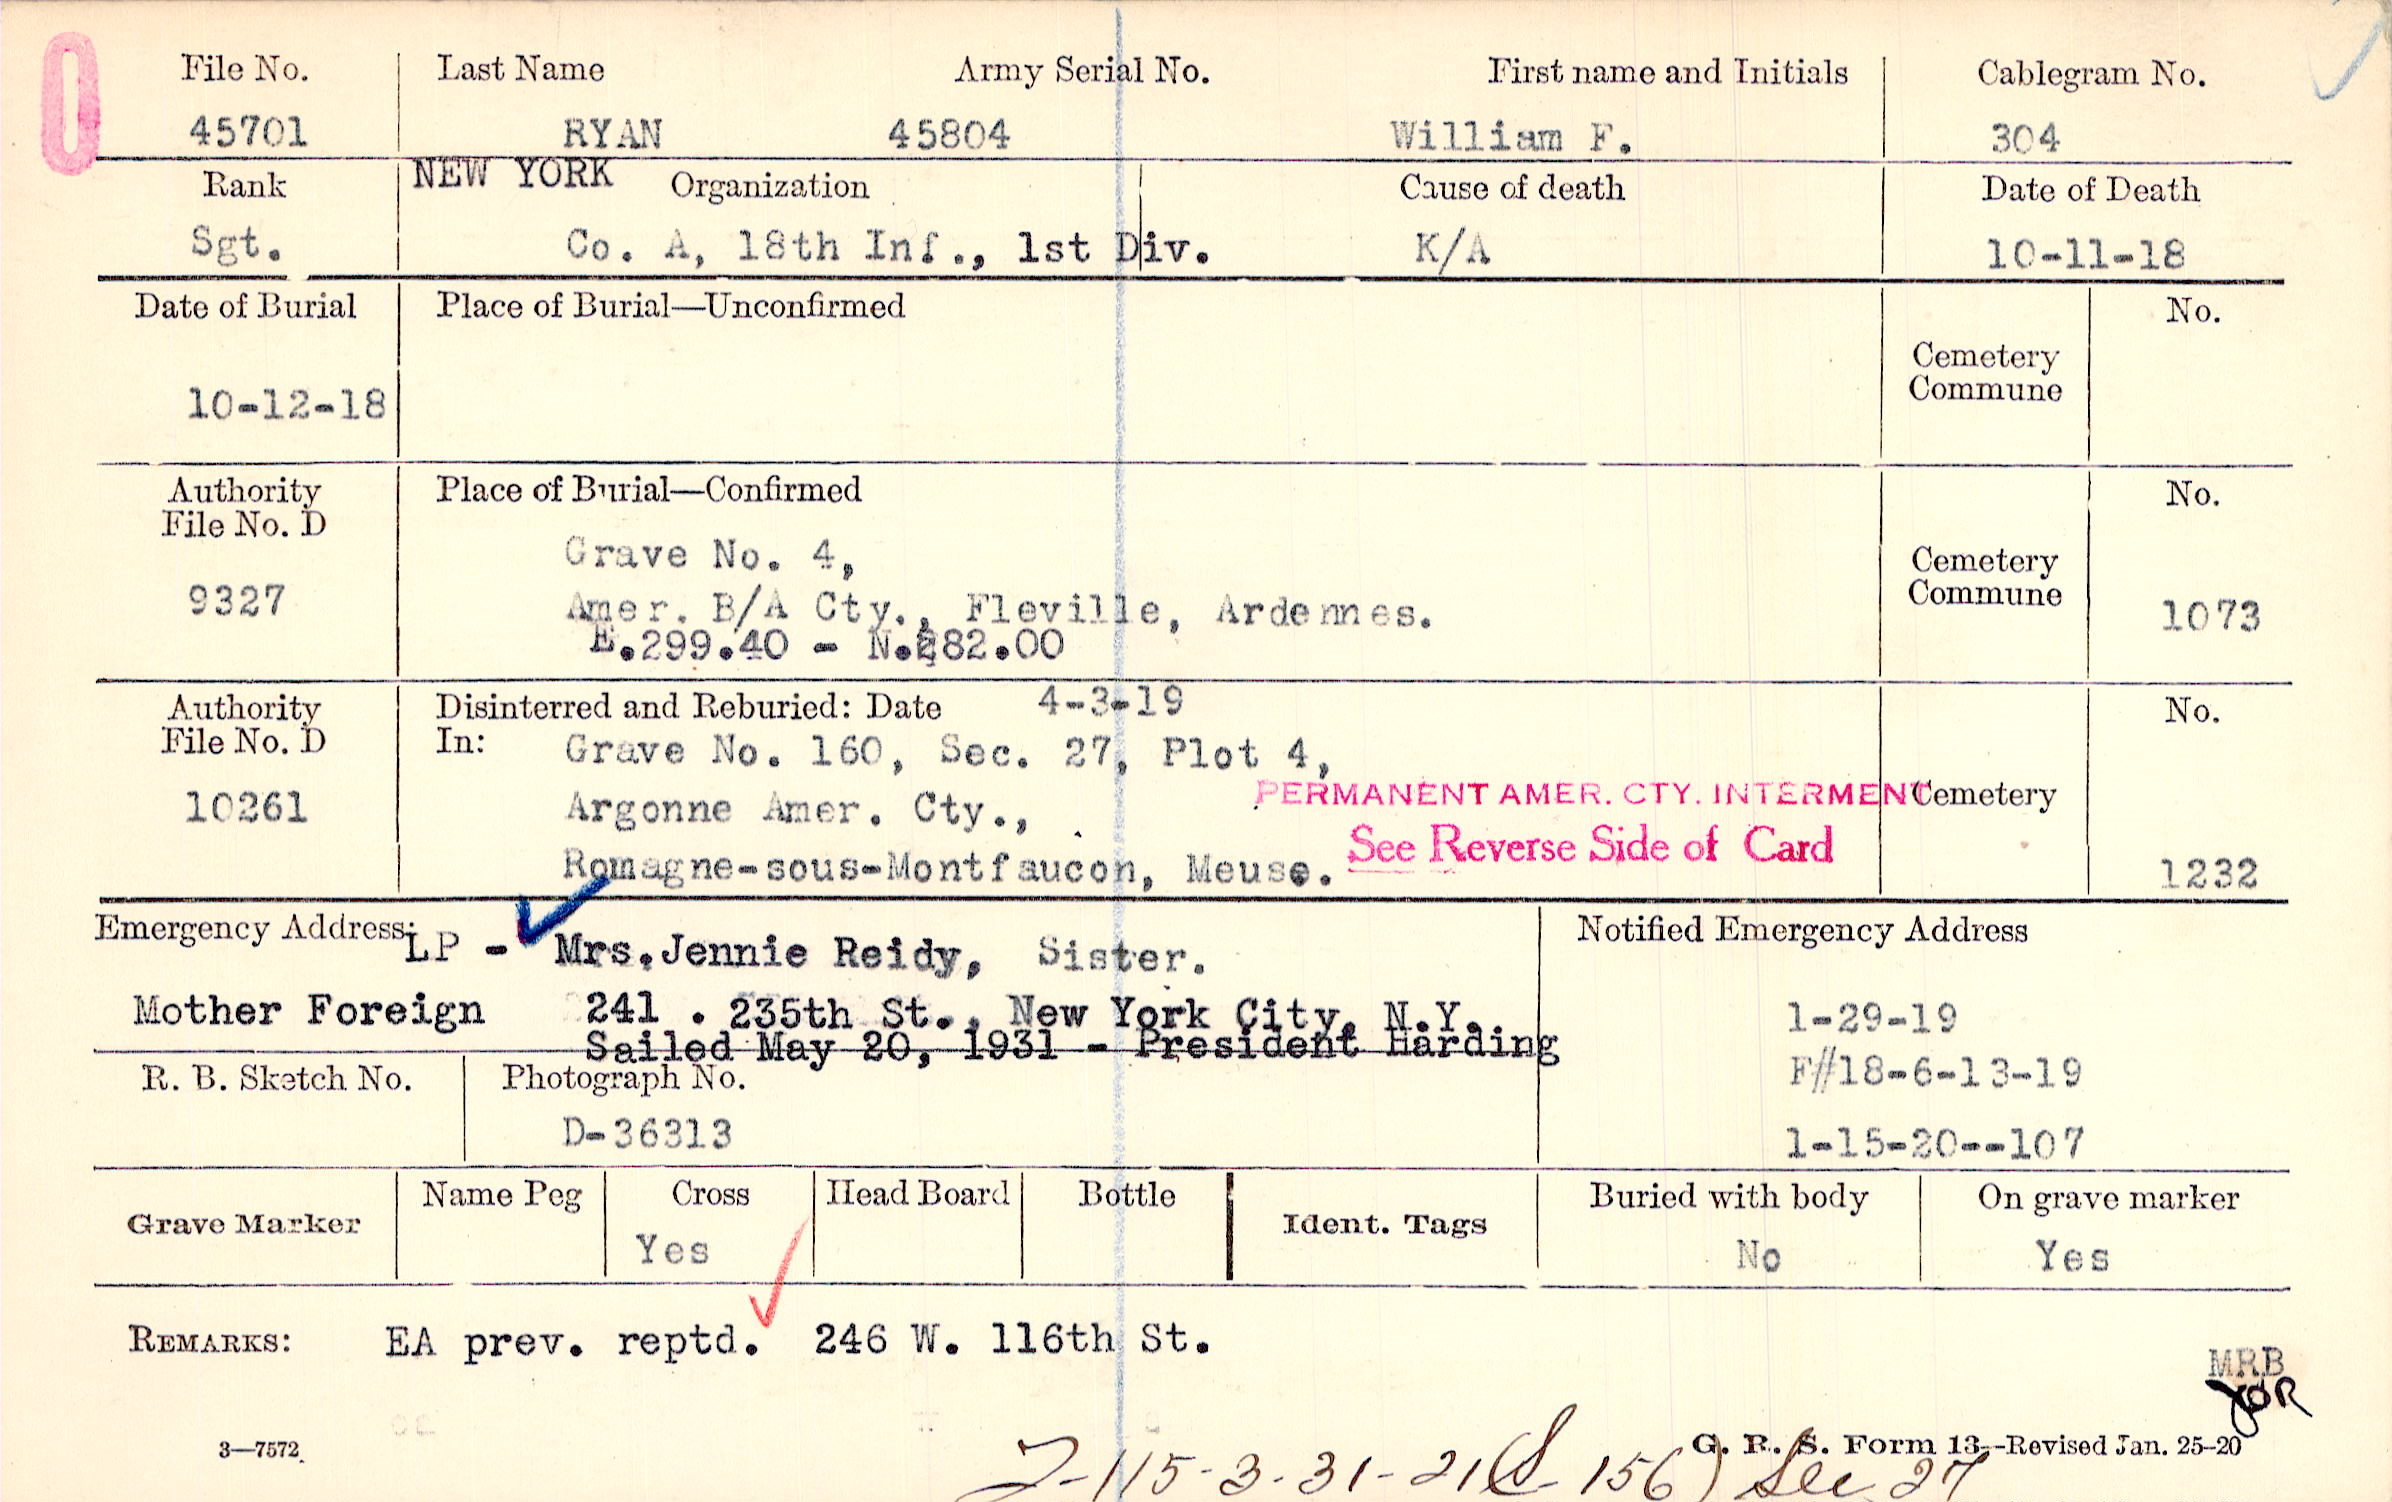 File No. Last Name Army Serial No. First name and Initials Cablegram No.
45701 RYAN 45804 William F. 304
Rank NEW YORK Organization Cause of death Date of Death
Sgt. Co. A, 18th Inf., 1st Div. K/A 10-11-18
Date of Burial Place of Burial—Unconfirmed No.
Cemetery
Commune
10-12-18
Authority Place of Burial—Confirmed No.
File No. D
Grave No. 4,
Cemetery
9327 Amer. B/A Cty., Fleville, Ardennes. Commune 1073
E.299.40 - N.282.00
Authority Disinterred and Reburied: Date 4-3-19 No.
File No. D In: Grave No. 160, Sec. 27, Plot 4,
PERMANENT AMER. CTY. INTERMENT Cemetery
10261 Argonne Amer. Cty.,
See Reverse Side of Card
Romagne-sous-Montfaucon, Meuse. 1232
Emergency Address: LP - Mrs. Jennie Reidy, Sister. Notified Emergency Address
Mother Foreign 241 . 235th St., New York City, N.Y. 1-29-19
Sailed May 20, 1931 - President Harding
R. B. Sketch No. Photograph No. F#18-6-13-19
D-36313 1-15-20--107
Grave Marker Name Peg Cross Head Board Bottle Ident. Tags Buried with body On grave marker
Yes No Yes
REMARKS: EA prev. reptd. 246 W. 116th St.
MRB
JOR
3—7572 G. R. S. Form 13—Revised Jan. 25-20
115-3-31-21 (S 156) Sec 27